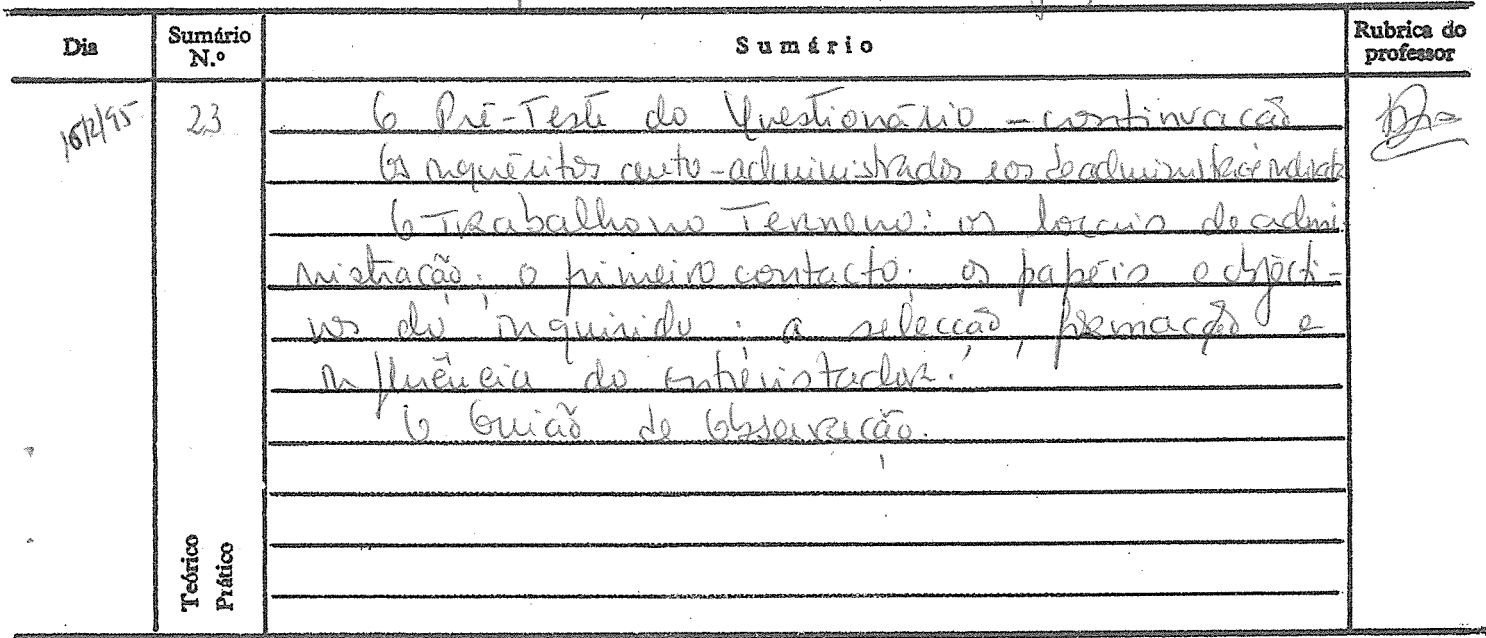 Dia
Sumário N.º
Sumário
Rubrica do professor
16/2/95
23
O Pré-Teste do Questionário - continuação
Os inquéritos auto-administrados e os de administração indirecta
O Trabalho no Terreno: os locais de admi-
nistração; o primeiro contacto; os papéis e objecti-
vos do inquirido; a selecção, formação e
influência do entrevistador.
O Guião de Observação.
Teórico
Prático